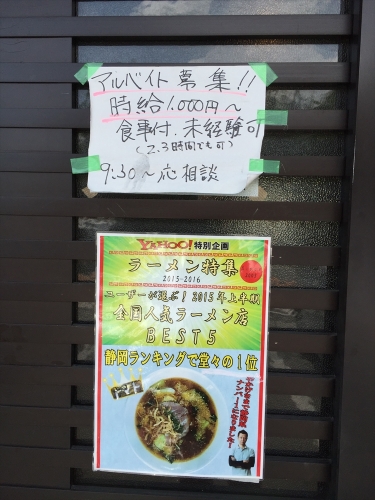 アルバイト募集!!
時給1,000円～
食事付.未経験可
(2.3時間でも可)
9:30～応相談
YAHOO!特別企画
ラーメン特集
2015-2016
ユーザーが選ぶ！2015年上半期
全国人気ラーメン店
BEST5
静岡ランキングで堂々の1位